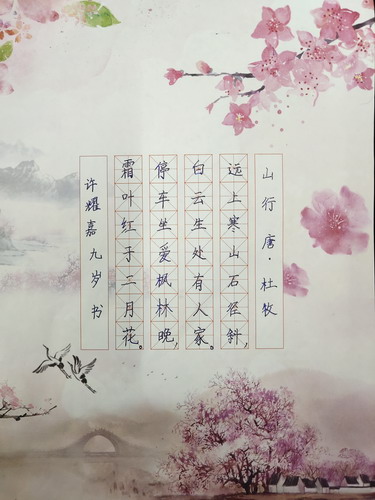 山行 唐·杜牧
远上寒山石径斜，
白云生处有人家。
停车坐爱枫林晚，
霜叶红于二月花。
许耀嘉九岁书